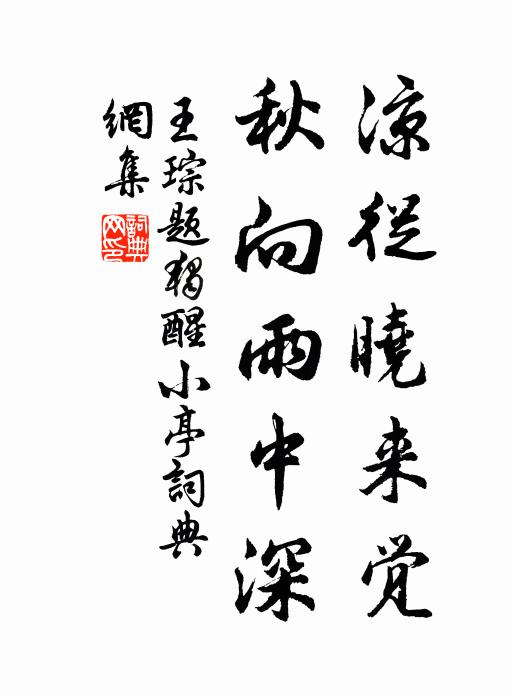 涼從曉来覚
秋向雨中深
王琮題獨醒小亭詞典
網集
詞典網印